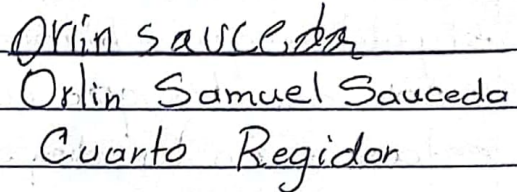 Orlin sauceda
Orlin Samuel Sauceda
Cuarto Regidor